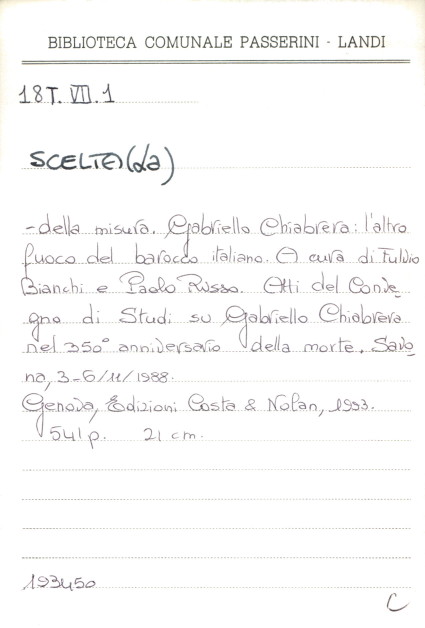 BIBLIOTECA COMUNALE PASSERINI - LANDI
18T. VII. 1
SCELTE) (La)
-della misura. Gabriello Chiabrera: l'altro
fuoco del barocco italiano. A cura di Fulvio
Bianchi e Paolo Russo. Atti del Conve
gno di Studi su Gabriello Chiabrera
nel 350° anniversario della morte. Savo
na, 3-6/11/1988.
Genova, Edizioni Costa & Nolan, 1993.
541 p. 21 cm.
193450
C